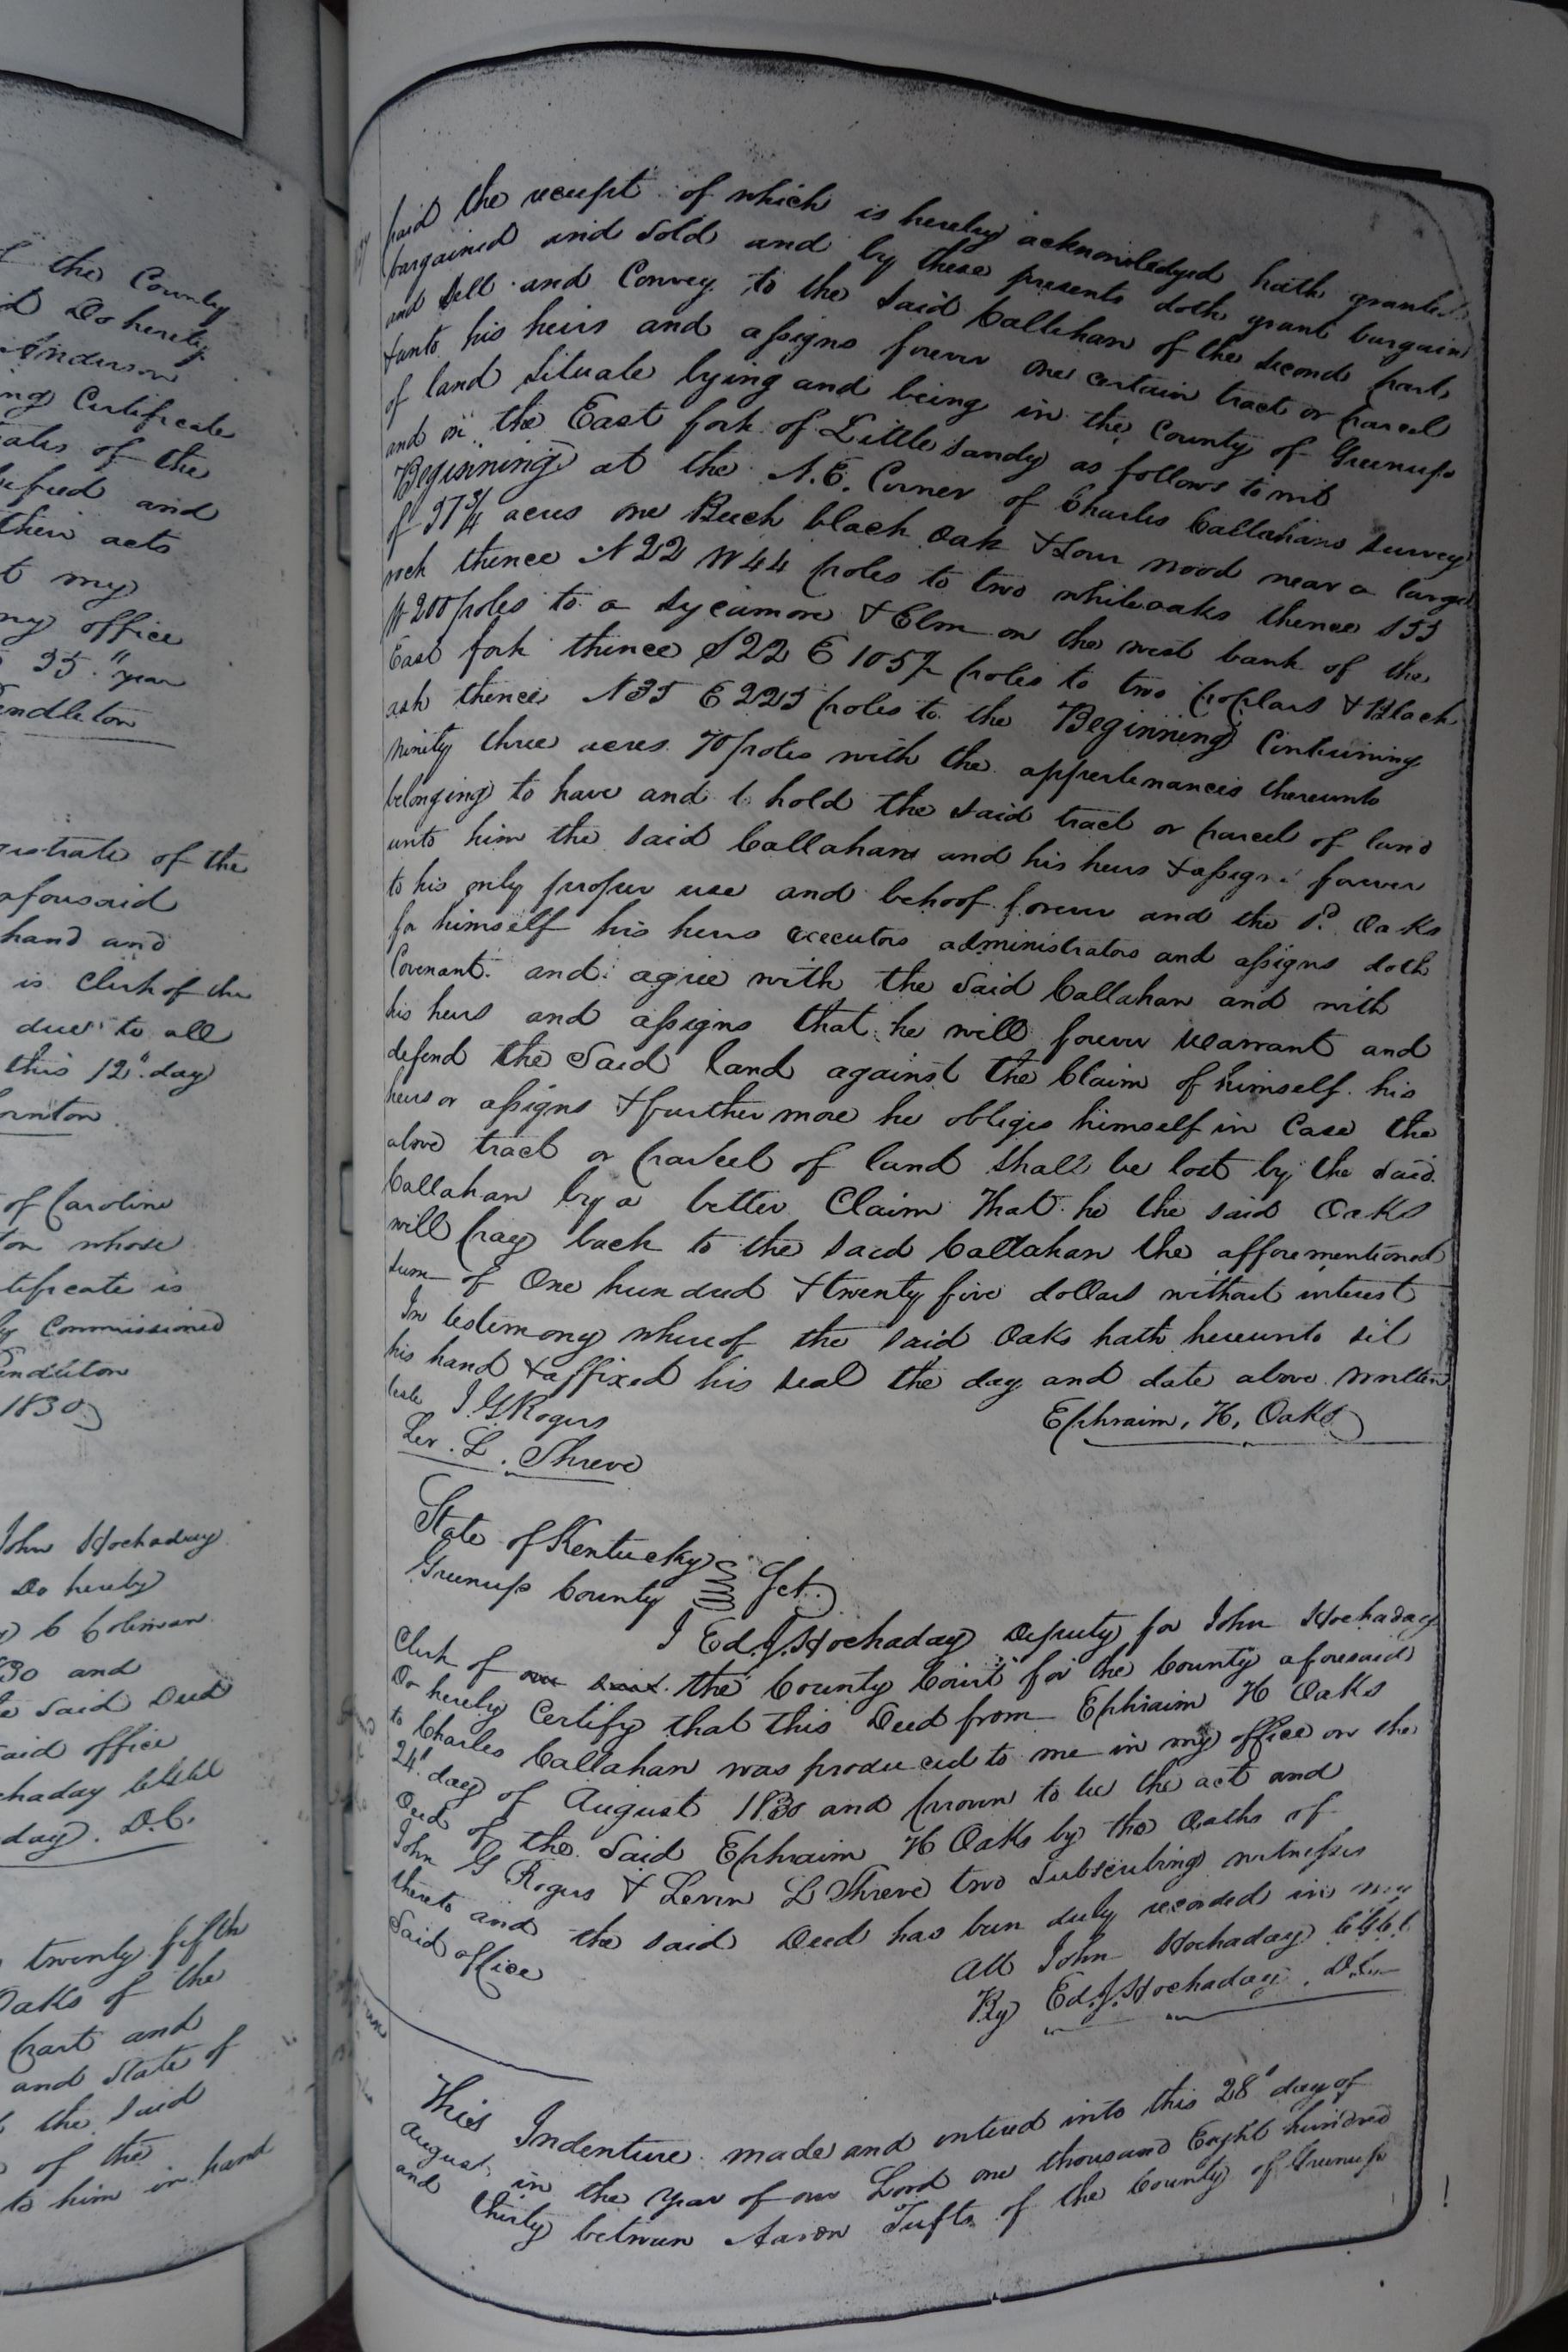 the County
Do hereby
Anderson
Certificate
of the
and
their acts
my
my office
35" year
Pendleton
of the
aforesaid
hand and
is Clerk of the
due to all
this 12" day
of Caroline
whose
is
Commissioned
Pendleton
1830
John Hockaday
Do hereby
C Coleman
and
said Deed
said office
day. D.C.
twenty fifth
Oaks of the
part and
and State of
the said
of the
to him in hand
paid the receipt of which is hereby acknowledged hath granted
bargained and Sold and by these presents doth grant bargain
and Sell and Convey to the said Callihan of the second part
& unto his heirs and assigns forever one certain tract or parcel
of land Situate lying and being in the County of Greenup
and on the East fork of Little Sandy as follows to wit
Beginning at the N.E. Corner of Charles Callahans survey
of 37 3/4 acres one Beech black Oak & Sour wood near a large
rock thence N 22 W 44 poles to two white oaks thence S 55
W 200 poles to a Sycamore & Elm on the west bank of the
East fork thence S 22 E poles to two poplars & Black
ash thence N 35 E 225 poles to the Beginning Containing
ninity three acres 70 poles with the appertenances thereunto
belonging to have and to hold the said tract or parcel of land
unto him the said Callahan and his heirs & assigns forever
to his only proper use and behoof forever and the sd. Oaks
for himself his heirs executors administrators and assigns doth
Covenant and agree with the Said Callahan and with
his heirs and assigns that he will forever warrant and
defend the Said land against the Claim of himself his
heirs or assigns & further more he obliges himself in Case the
above tract or parcel of land shall be lost by the said
Callahan by a better Claim that he the said Oaks
will pay back to the said Callahan the afforementioned
sum of One hundred & twenty five dollars without interest
In testimony whereof the said Oaks hath hereunto set
his hand & affixed his seal the day and date above written
teste J. G Rogers Ephraim, H, Oaks
Lev. L. Shreve
State of Kentucky
Greenup County Sct.
I Ed. J. Hockaday Deputy for John Hockaday
Clerk of the County Court for the County aforesaid
Do hereby Certify that this Deed from Ephraim H Oaks
to Charles Callahan was produced to me in my office on the
24" day of August 1830 and proven to be the act and
Deed of the Said Ephraim H Oaks by the Oaths of
John G Rogers & Levin L Shreve two Subscribing witnesses
thereto and the said Deed has been duly recorded in my
Said office
Att John Hockaday
By Ed. J. Hockaday. D.C.
This Indenture made and entered into this 28" day of
August in the Year of our Lord one thousand Eight hundred
and thirty between Aaron Tufts of the County of Greenup